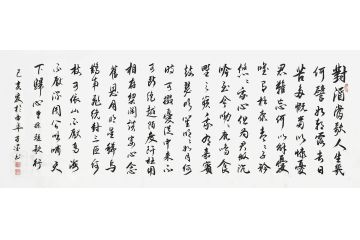 對酒當歌人生幾
何譬如朝露去日
苦多慨當以慷憂
思難忘何以解憂
唯有杜康青青子衿
悠悠我心但為君故沉
吟至今呦呦鹿鳴食
野之蘋我有嘉賓
鼓瑟吹笙明明如月何
時可掇憂從中來不
可斷絕越陌度阡枉用
相存契闊談讌心念
舊恩月明星稀烏
鵲南飛繞樹三匝何
枝可依山不厭高海
不厭深周公吐哺天
下歸心曹操短歌行